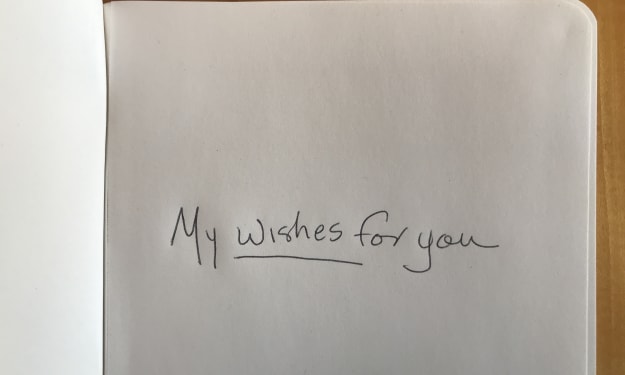 My wishes for you